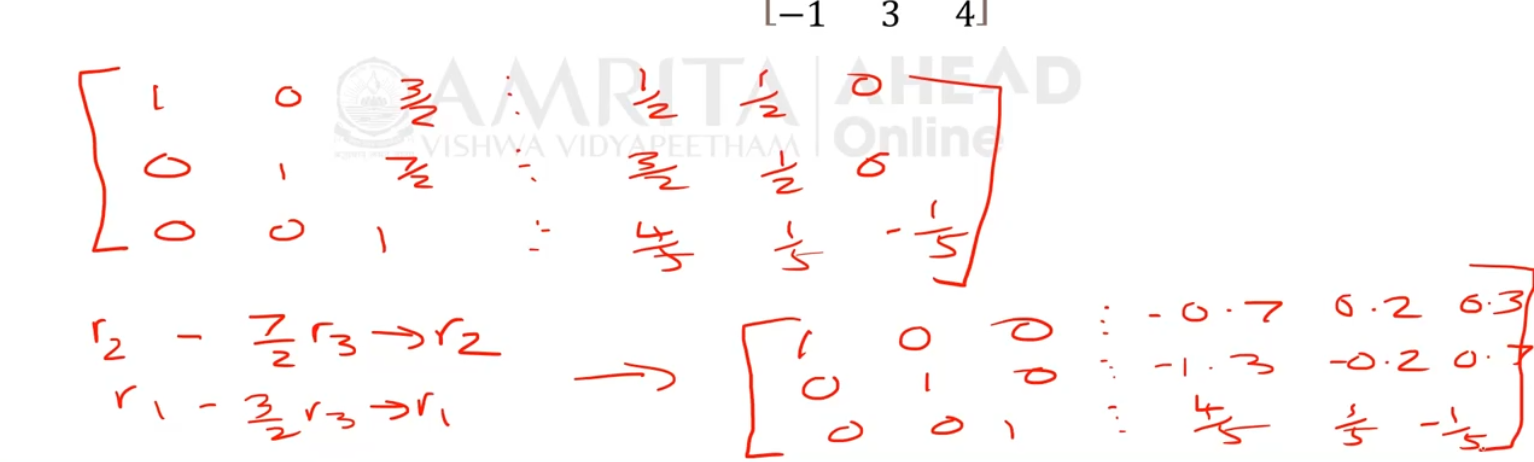 [-1 3 4]
AMRITA AHEAD
VISHWA VIDYAPEETHAM Online
1 0 3/2 ⋮ 1/2 1/2 0
0 1 7/2 ⋮ 3/2 1/2 0
0 0 1 ⋮ 4/5 1/5 -1/5
r₂ - 7/2 r₃ → r₂
r₁ - 3/2 r₃ → r₁
→
1 0 0 ⋮ -0.7 0.2 0.3
0 1 0 ⋮ -1.3 -0.2 0.7
0 0 1 ⋮ 4/5 1/5 -1/5